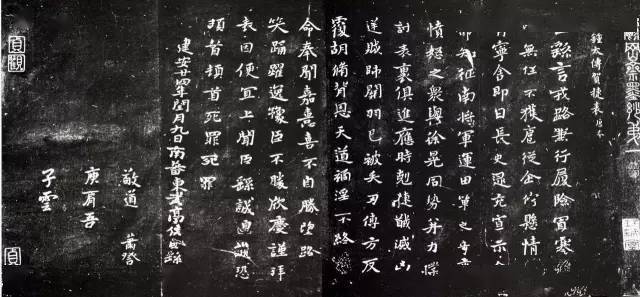 鍾太傅賀捷表
繇言戎路兼行履險冒寒
無任不獲扈從企佇懸情
有寧舍即日長史逮充宣示令
知征南將軍運田單之奇
憤怒之衆與徐晃同勢并力撲
討表裏俱進應時剋捷馘滅凶
逆賊帥關羽已被矢刃傅方反
覆胡脩背恩天道禍淫不終
命奉聞嘉憙喜不自勝望路
笑踊躍逸豫臣不勝欣慶謹拜
表因便宜上聞臣繇誠惶誠恐
頓首頓首死罪死罪
建安廿四年閏月九日南蕃東武亭侯臣繇
敬道 蕭登
庾肩吾
子雲
貞觀
貞